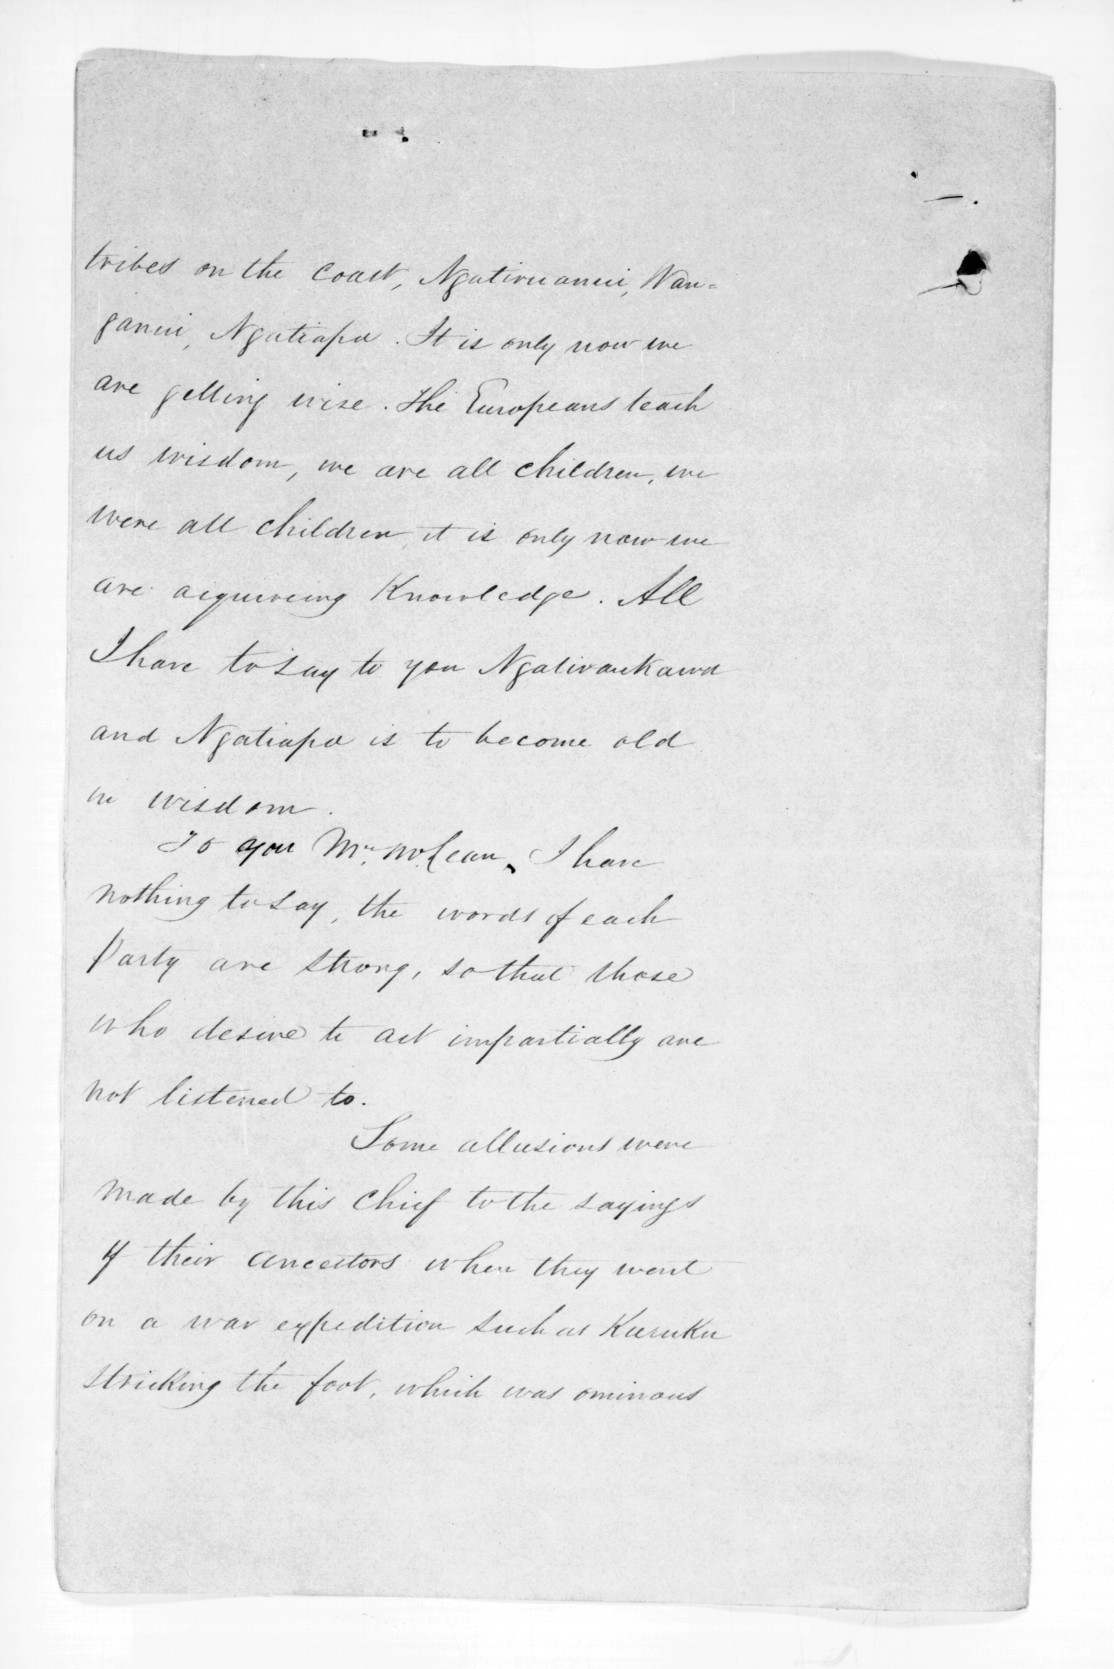 tribes on the coast, Ngatiruanui, Wan=
ganui, Ngatiapa. It is only now we
are getting wise. The Europeans teach
us wisdom, we are all children, we
were all children, it is only now we
are aiquireing Knowledge. All
I have to say to you Ngatiraukawa
and Ngatiapa is to become old
in wisdom.
To you Mr. McLean, I have
nothing to say, the words of each
Party are strong, so that those
who desire to act impartially are
not listened to.
Some allusions were
made by this Chief to the sayings
of their ancestors when they went
on a war expedition such as Kuruku
stricking the foot, which was ominous